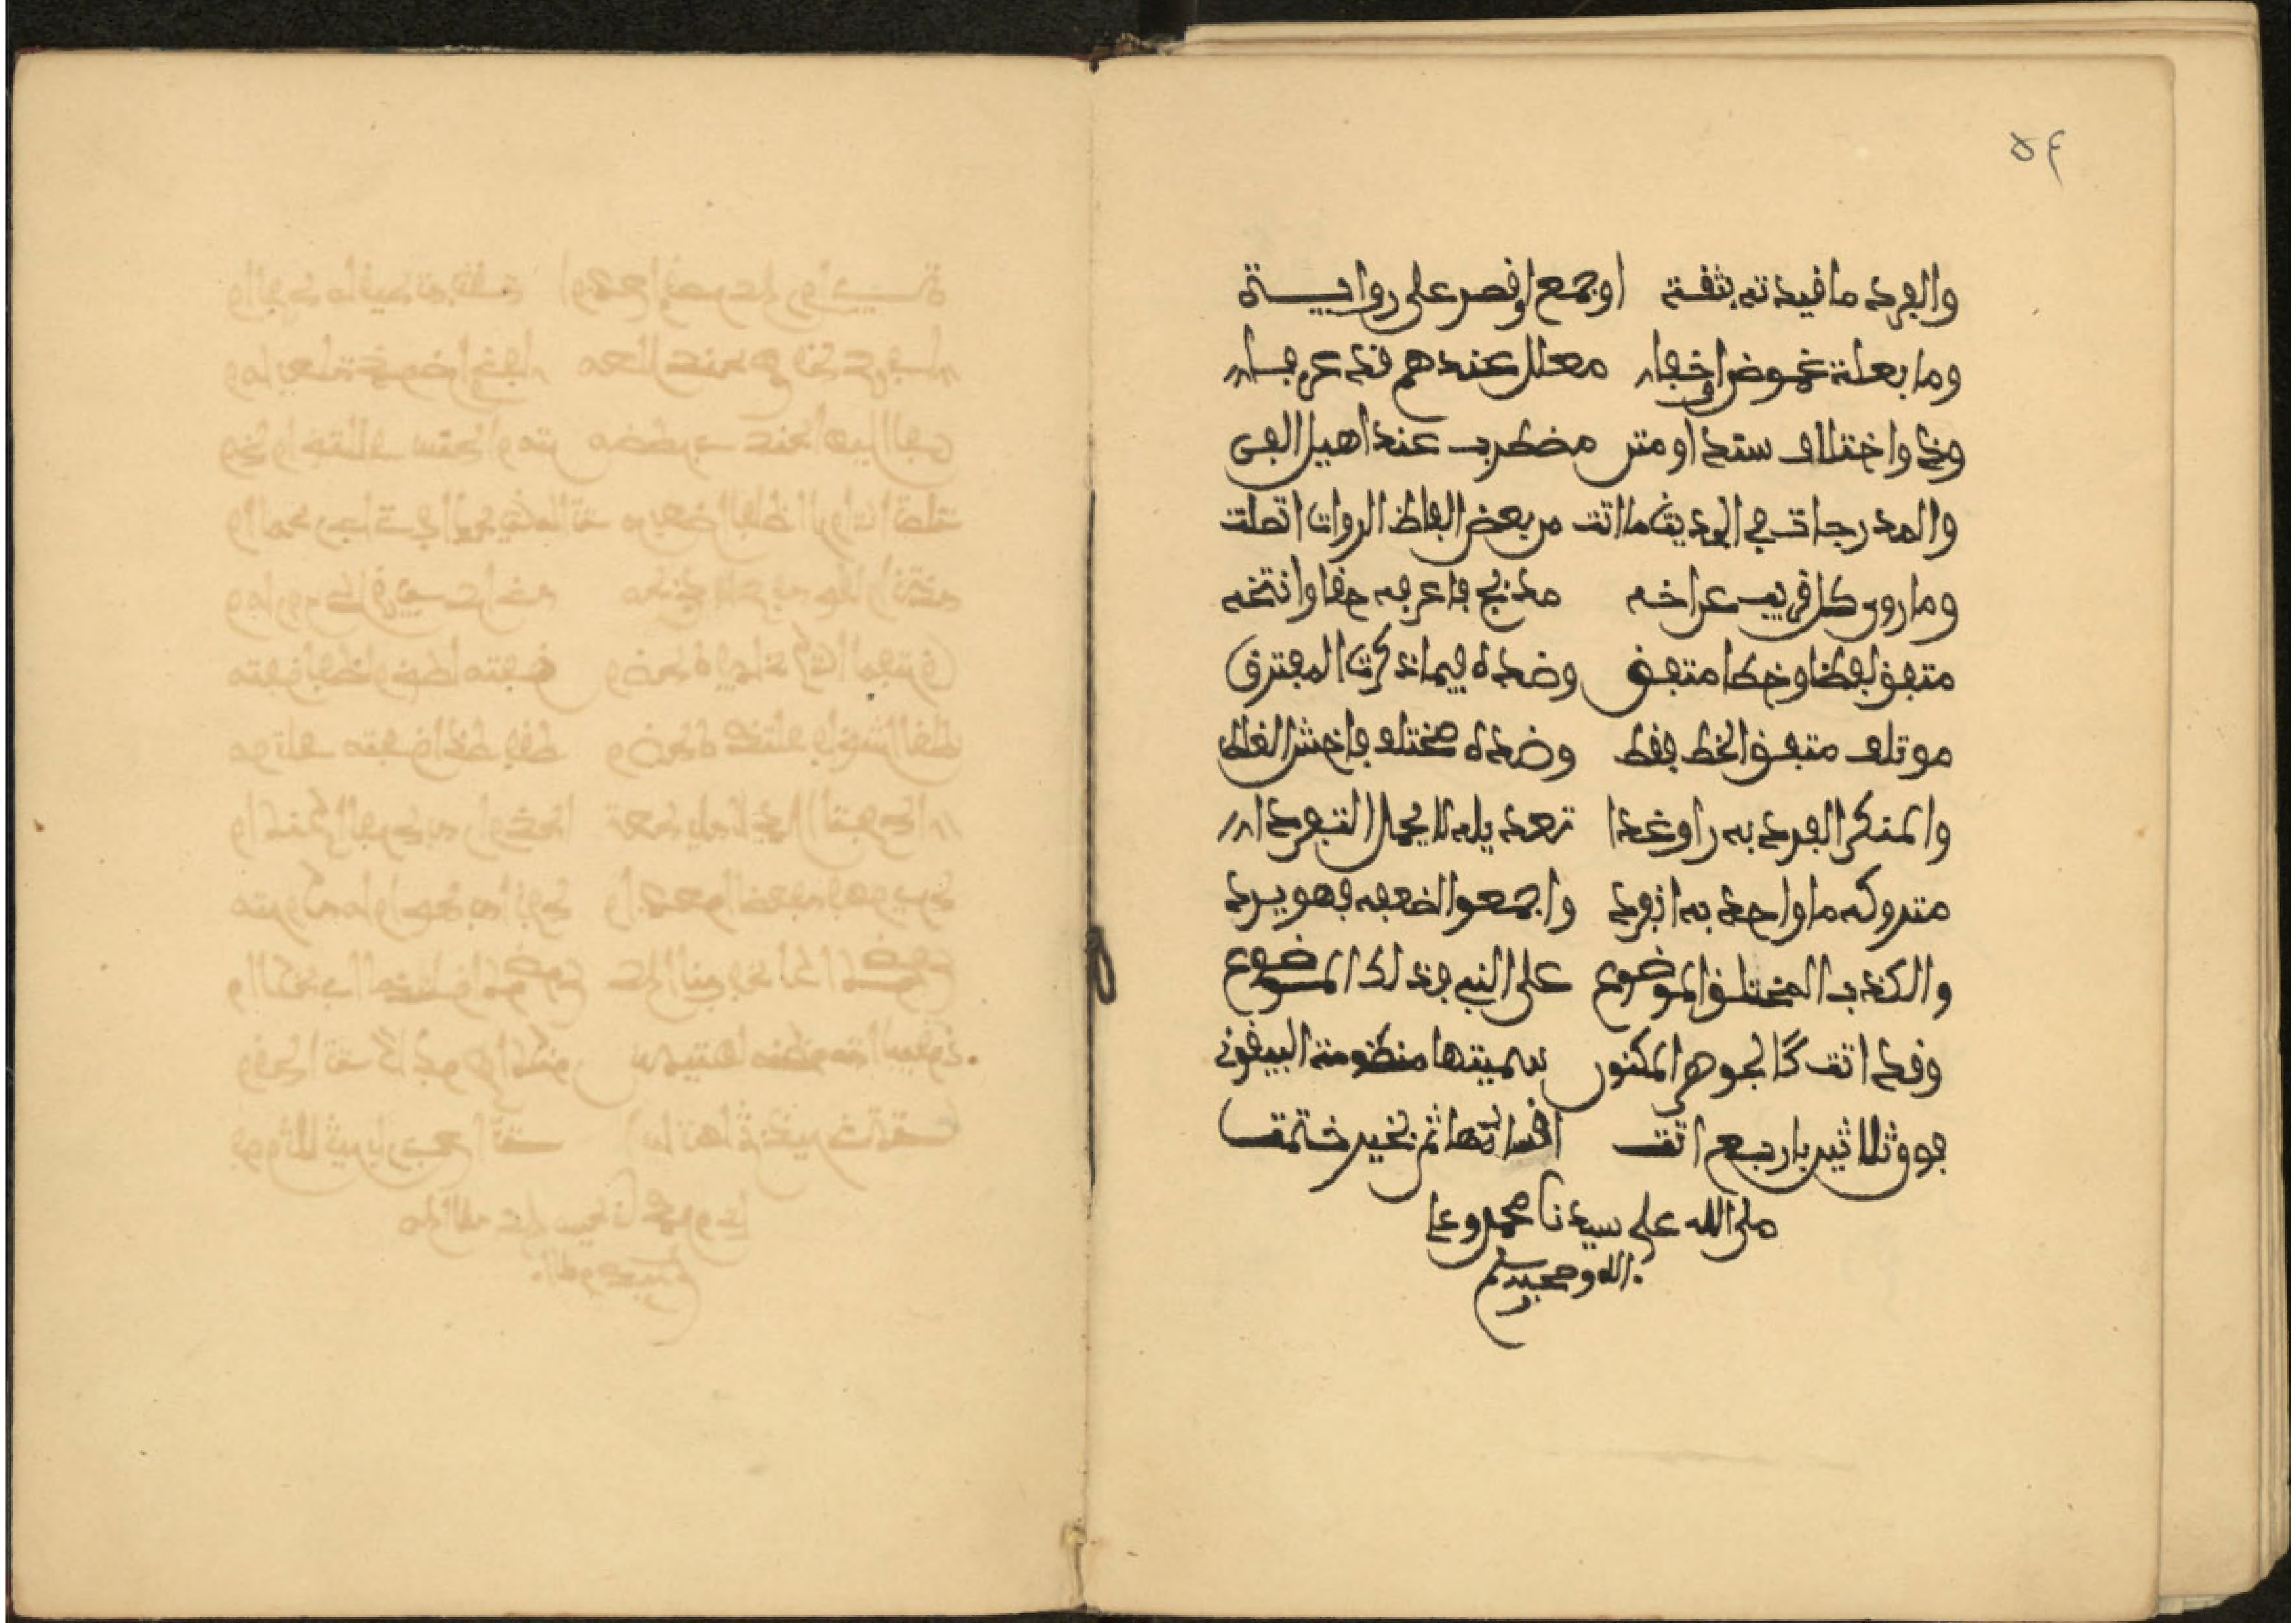 ٥٤
والفرد ما قيدته بثقة    او جمع او قصر على رواية
وما بعلة غموض او خفا    معلل عندهم قد عرفا
وذو اختلاف سند او متن    مضطرب عند اهيل الفن
والمدرجات في الحديث ما اتت    من بعض الفاظ الروات اتصلت
وما روى كل قرين عن اخه    مدبج فاعرفه حقا وانتخه
متفق لفظا وخطا متفق    وضده فيما ذكرت المفترق
موتلف متفق الخط فقط    وضده مختلف فاخش الغلط
والمنكر الفرد به راو غدا    تعديله لا يحمل التفردا
متروكه ما واحد به انفرد    واجمعوا لضعفه فهو يرد
والكذب المختلق الموضوع    على النبي فذلك الموضوع
وقد اتت كالجوهر المكنون    سميتها منظومة البيقوني
فوق ثلاثين باربع اتت    اقسامها ثم بخير ختمت
صلى الله على سيدنا محمد وعلى
اله وصحبه وسلم